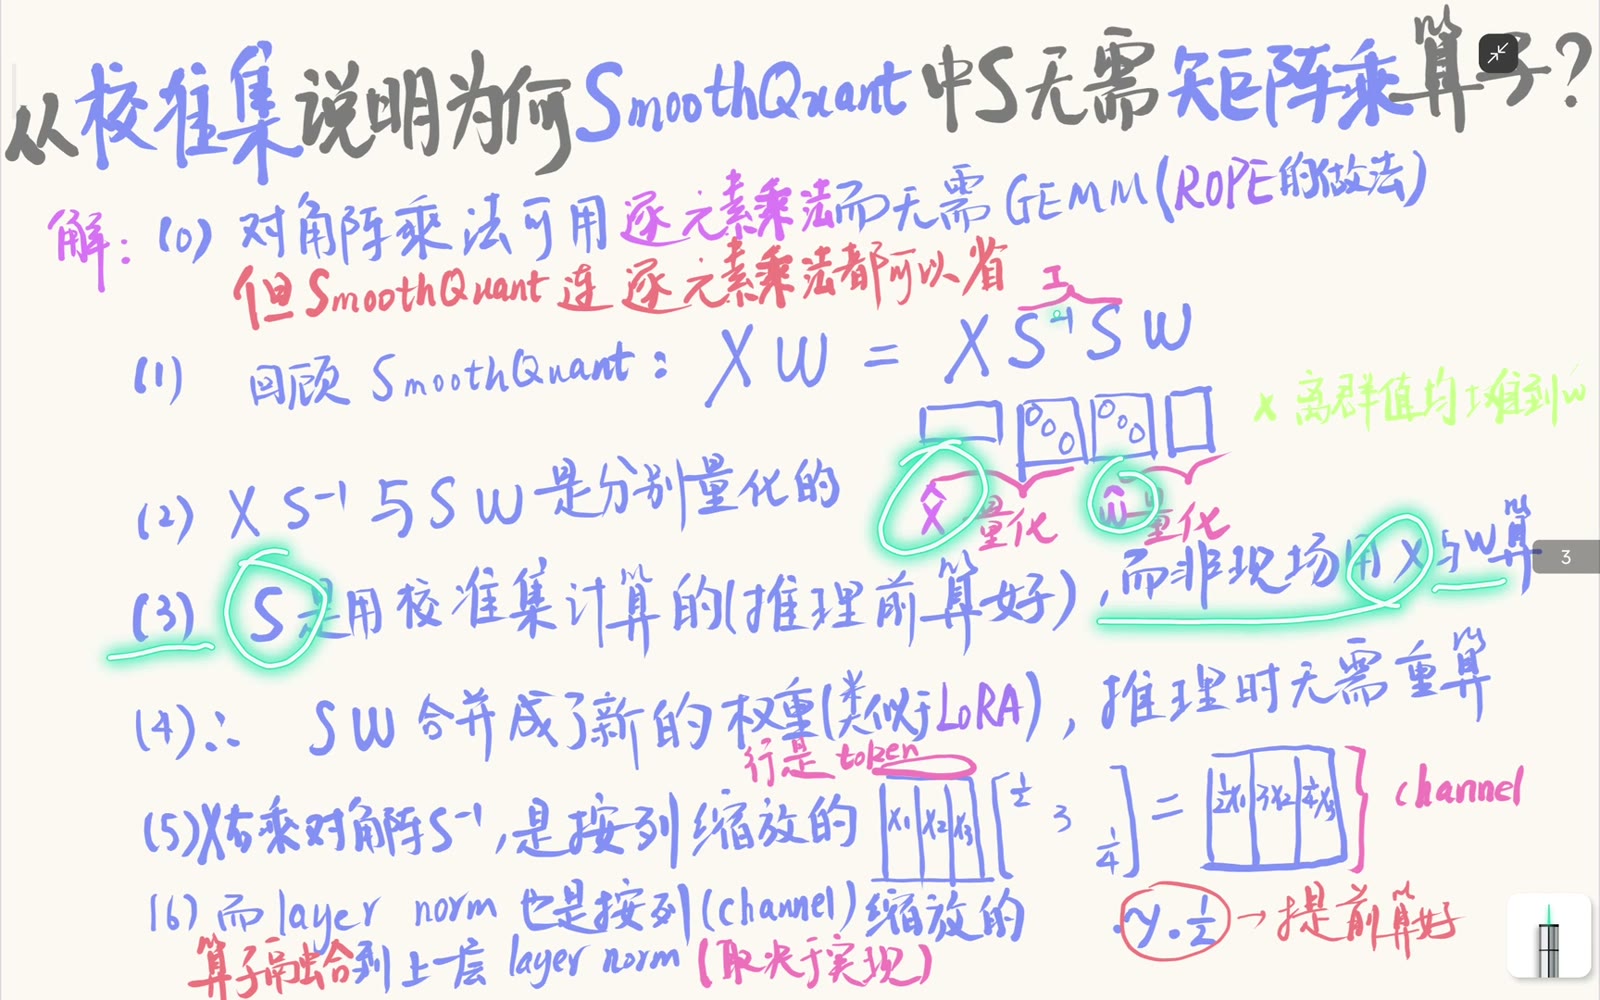 从校准集说明为何SmoothQuant中S无需矩阵乘算子?
解: (0) 对角阵乘法可用逐元素乘法而无需GEMM(ROPE的做法)
但SmoothQuant连逐元素乘法都可以省
I
(1) 回顾 SmoothQuant: XW = XS⁻¹SW
X 离群值均摊到W
(2) XS⁻¹与SW是分别量化的
X̂ 量化 Ŵ 量化
(3) S是用校准集计算的(推理前算好),而非现场用X与W算
3
(4)∴ SW合并成了新的权重(类似于LoRA),推理时无需重算
行是token
(5)X右乘对角阵S⁻¹,是按列缩放的 X₁ X₂ X₃ [½ 3 ¼] = ½X₁ 3X₂ ¼X₃ } channel
(6)而layer norm也是按列(channel)缩放的 γ·½→提前算好
算子融合到上一层layer norm(取决于实现)